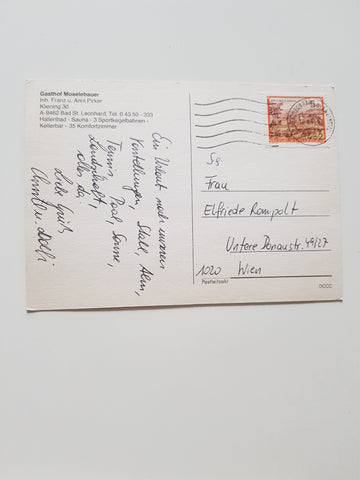 Gasthof Moselebauer
Inh. Franz u. Anni Pirker
Kliening 30
A-9462 Bad St. Leonhard, Tel. 0 43 50 - 333
Hallenbad - Sauna - 3 Sportkegelbahnen -
Kellerbar - 35 Komfortzimmer
Ein Urlaub nach unseren
Vorstellungen, Stall, Alm,
Tennis, Pool, Sonne,
Landschaft,
alles da,
Liebe Grüße
Frau
Elfriede Rompolt
Untere Donaustr. 49/27
1020 Wien
Postleitzahl